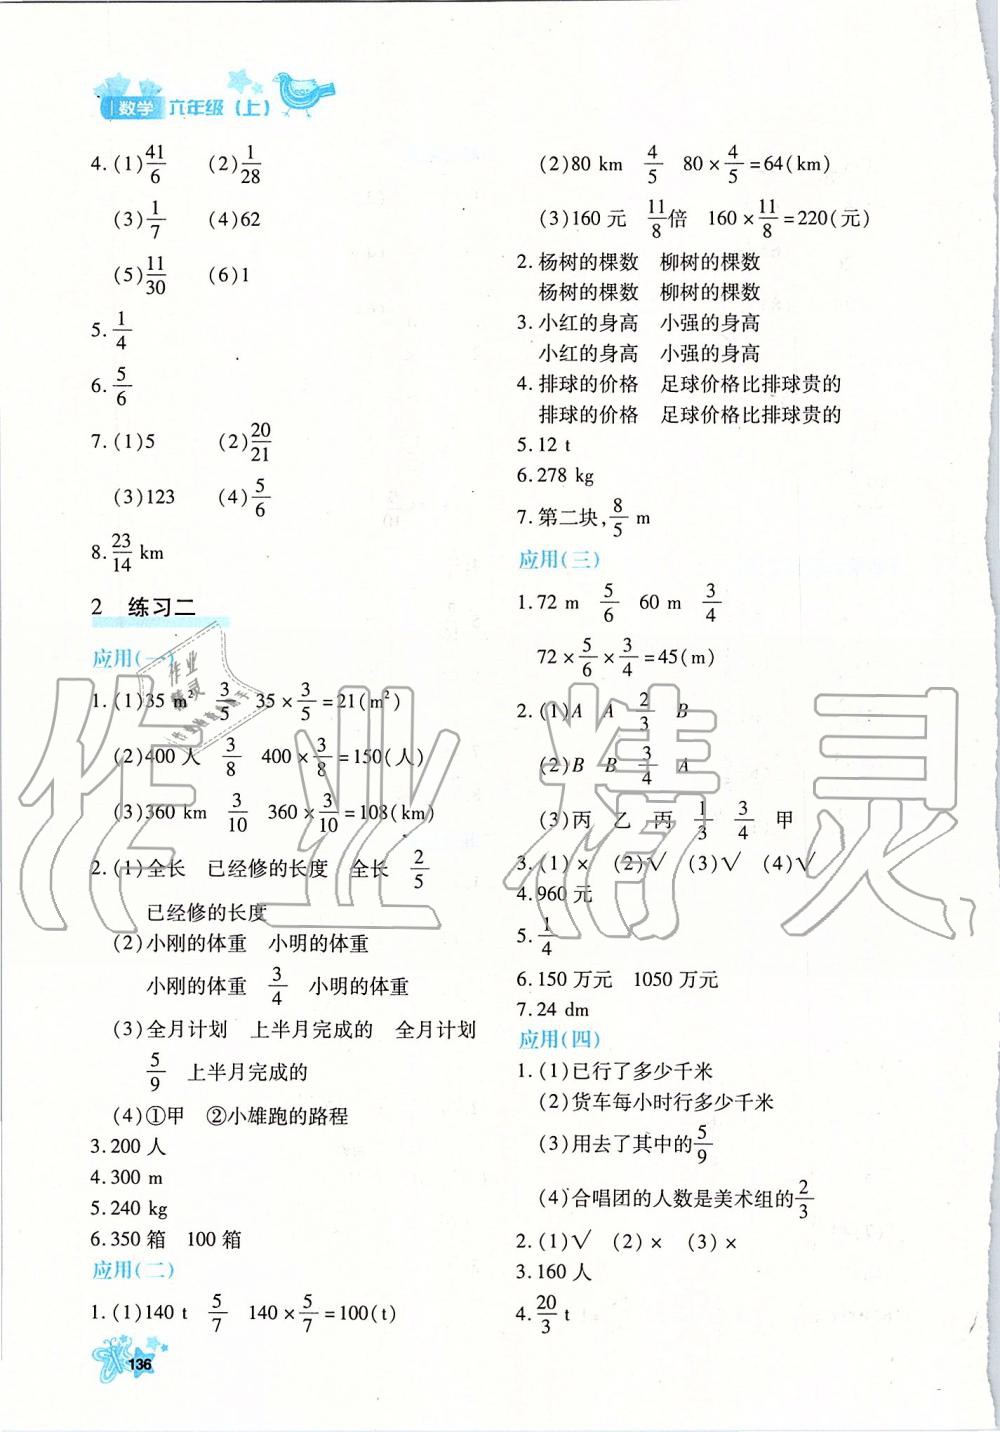 数学 六年级(上)
4.(1)41/6 (2)1/28
(3)1/7 (4)62
(5)11/30 (6)1
5.1/4
6.5/6
7.(1)5 (2)20/21
(3)123 (4)5/6
8.23/14 km
2 练习二
应用(一)
1.(1)35 m² 3/5 35×3/5=21(m²)
(2)400人 3/8 400×3/8=150(人)
(3)360 km 3/10 360×3/10=108(km)
2.(1)全长 已经修的长度 全长 2/5
已经修的长度
(2)小刚的体重 小明的体重
小刚的体重 3/4 小明的体重
(3)全月计划 上半月完成的 全月计划
5/9 上半月完成的
(4)①甲 ②小雄跑的路程
3.200人
4.300 m
5.240 kg
6.350箱 100箱
应用(二)
1.(1)140 t 5/7 140×5/7=100(t)
136
(2)80 km 4/5 80×4/5=64(km)
(3)160元 11/8倍 160×11/8=220(元)
2.杨树的棵数 柳树的棵数
杨树的棵数 柳树的棵数
3.小红的身高 小强的身高
小红的身高 小强的身高
4.排球的价格 足球价格比排球贵的
排球的价格 足球价格比排球贵的
5.12 t
6.278 kg
7.第二块,8/5 m
应用(三)
1.72 m 5/6 60 m 3/4
72×5/6×3/4=45(m)
2.(1)A A 2/3 B
(2)B B 3/4 A
(3)丙 乙 丙 1/3 3/4 甲
3.(1)× (2)√ (3)√ (4)√
4.960元
5.1/4
6.150万元 1050万元
7.24 dm
应用(四)
1.(1)已行了多少千米
(2)货车每小时行多少千米
(3)用去了其中的5/9
(4)合唱团的人数是美术组的2/3
2.(1)√ (2)× (3)×
3.160人
4.20/3 t
作业精灵
作业
精灵